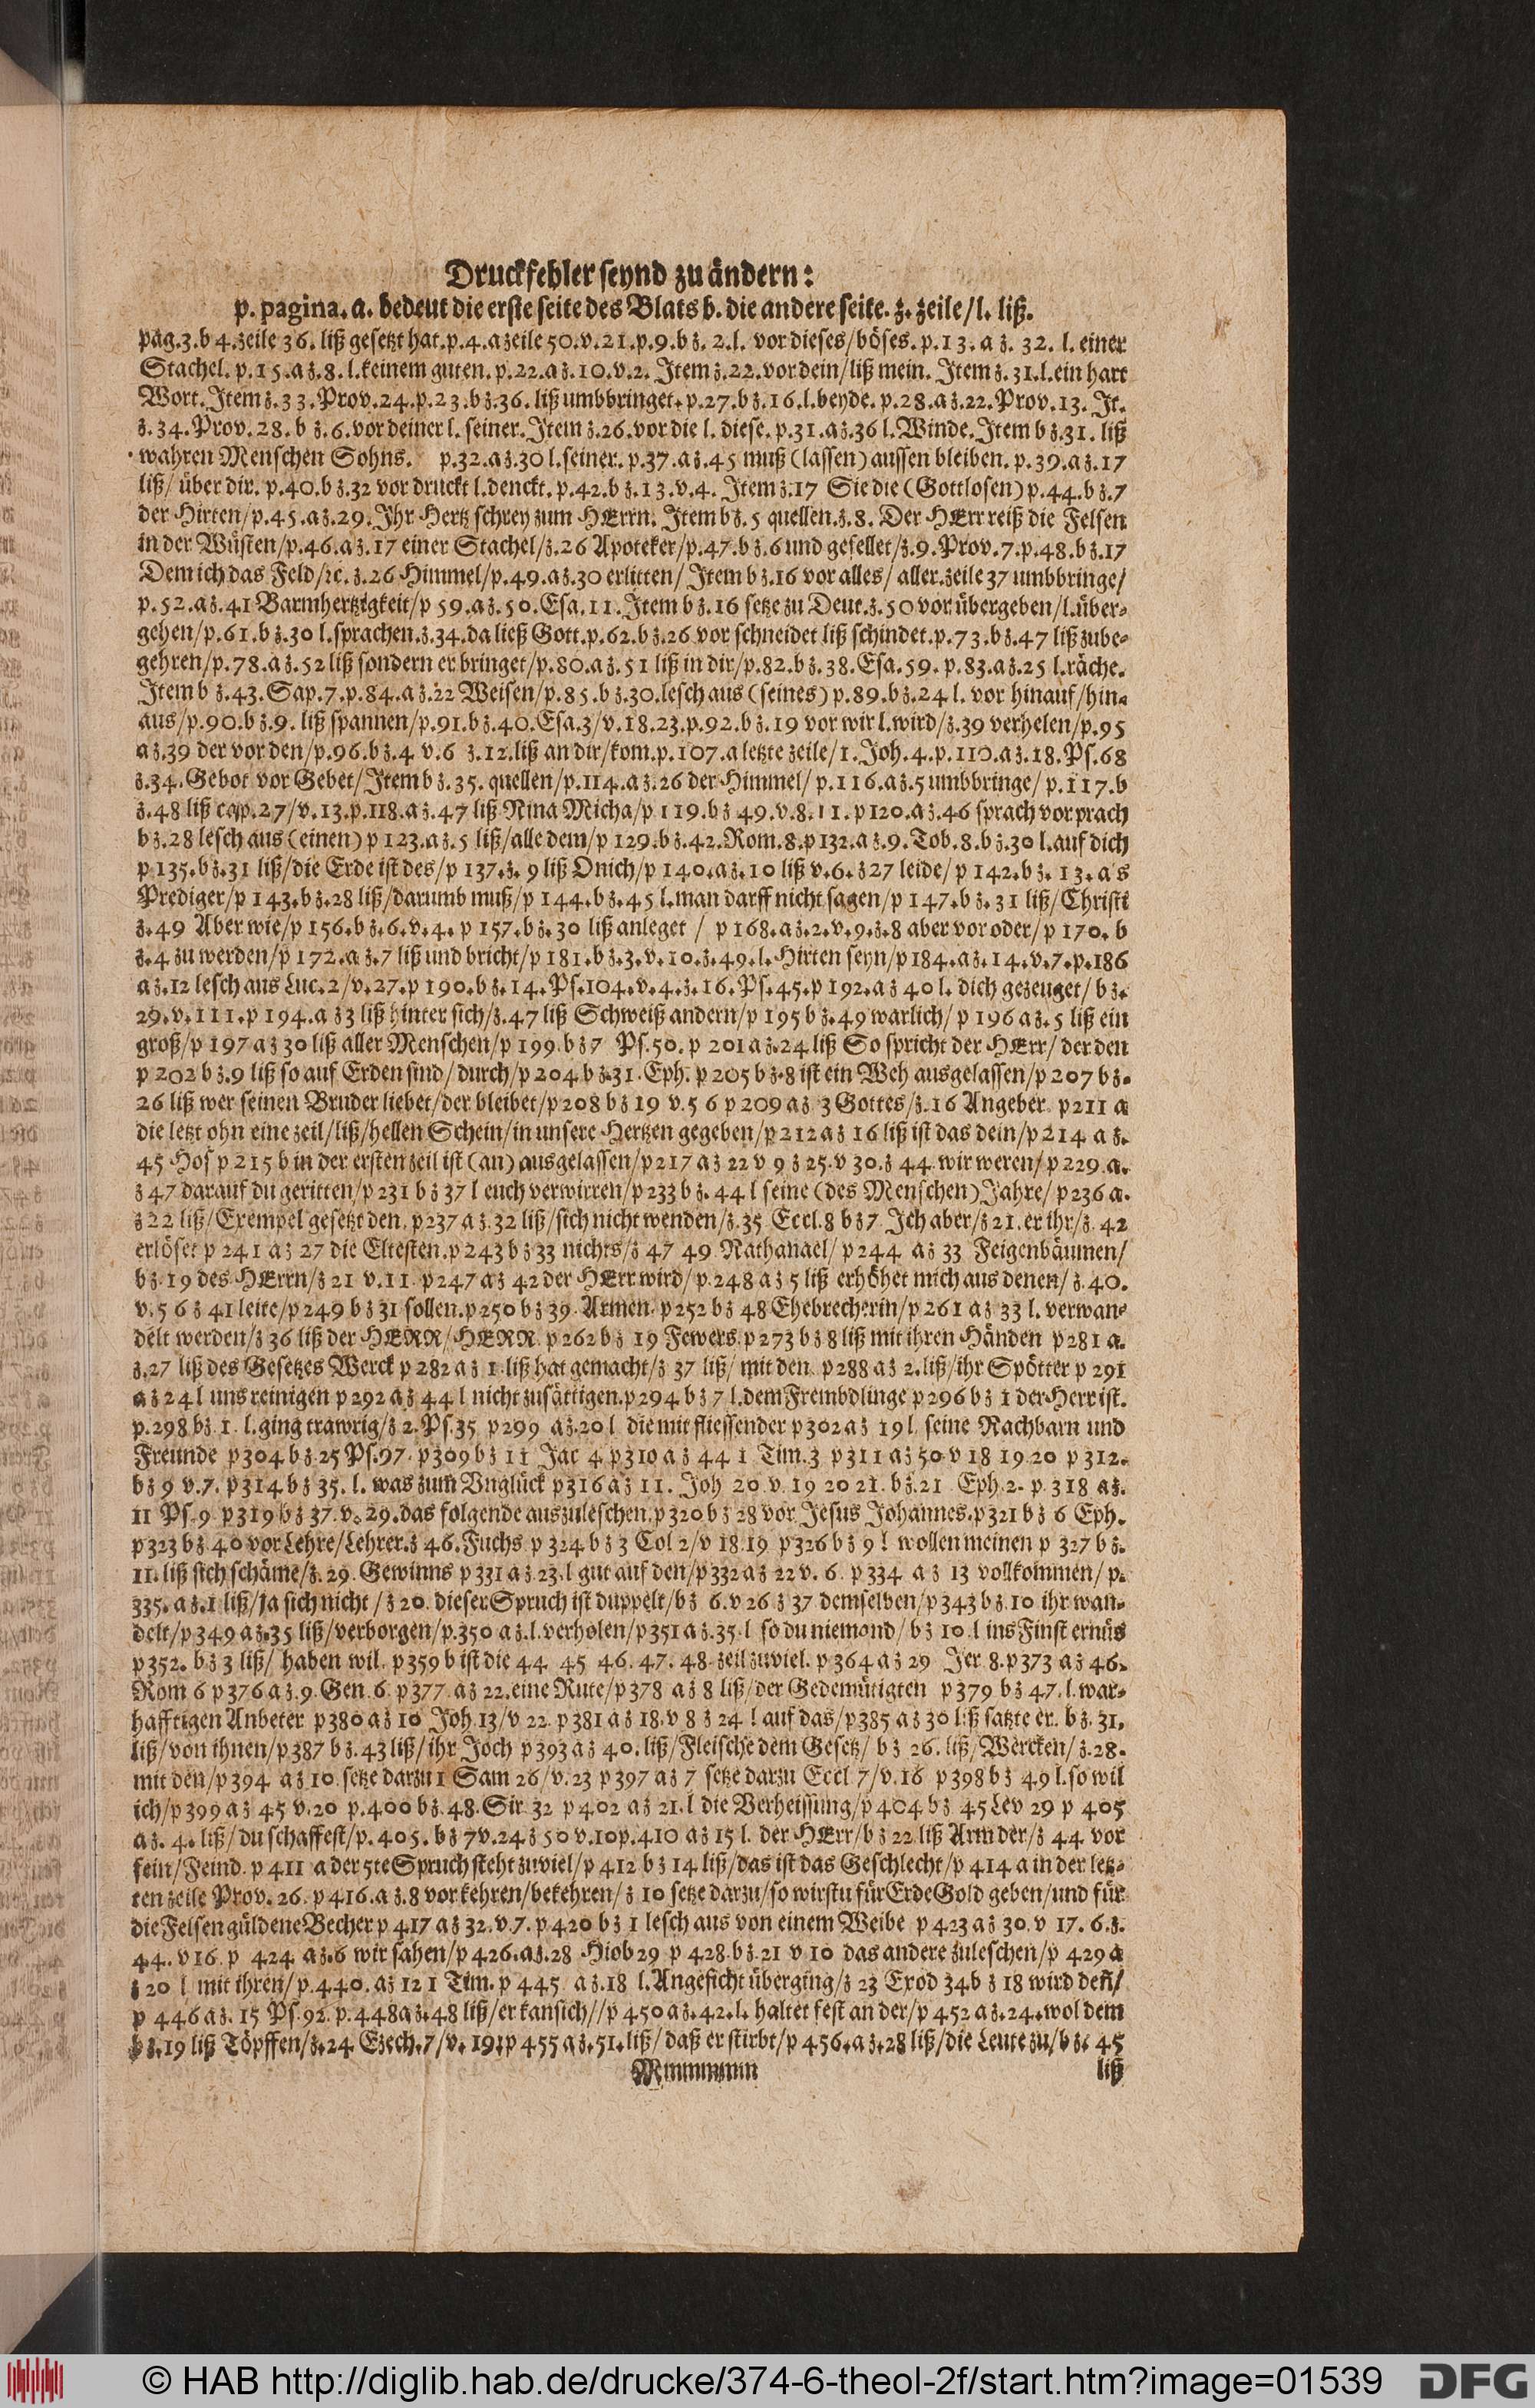 Druckfehler seynd zu ändern:
p. pagina. a. bedeut die erste seite des Blats b. die andere seite. z. zeile/l. liß.
pag.3.b 4.zeile 36. liß gesetzt hat.p.4.a zeile 50.v.21.p.9.b z. 2.l. vor dieses/böses. p.13.a z. 32. l. einer
Stachel. p.15.a z.8.l.keinem guten. p.22.a z.10.v.2. Item z.22.vor dein/liß mein. Item z.31.l.ein hart
Wort. Item z.33.Prov.24.p.23.b z.36. liß umbbringet.p.27.b z.16.l.beyde. p.28.a z.22.Prov.13. It.
z.34.Prov.28.b z.6.vor deiner l. seiner.Item z.26.vor die l. diese. p.31.a z.36 l.Winde.Item b z.31. liß
wahren Menschen Sohns. p.32.a z.30 l.seiner. p.37.a z.45 muß (lassen) aussen bleiben. p.39.a z.17
liß/ über dir. p.40.b z.32 vor druckt l.denckt. p.42.b z.13.v.4. Item z.17 Sie die (Gottlosen) p.44.b z.7
der Hirten/p.45.a z.29.Ihr Hertz schrey zum HErrn. Item b z.5 quellen.z.8. Der HErr reiß die Felsen
in der Wüsten/p.46.a z.17 einer Stachel/z.26 Apoteker/p.47.b z.6 und gesellet/z.9.Prov.7.p.48.b z.17
Dem ich das Feld/ꝛc. z.26 Himmel/p.49.a z.30 erlitten/ Item b z.16 vor alles/ aller.zeile 37 umbbringe/
p.52.a z.41 Barmhertzigkeit/p 59.a z.50.Esa.11.Item b z.16 setze zu Deut.z.50 vor übergeben/l.über-
gehen/p.61.b z.30 l.sprachen.z.34.da ließ Gott.p.62.b z.26 vor schneidet liß schindet.p.73.b z.47 liß zube-
gehren/p.78.a z.52 liß sondern er bringet/p.80.a z.51 liß in dir/p.82.b z.38.Esa.59. p.83.a z.25 l.räche.
Item b z.43.Sap.7.p.84.a z.22 Weisen/p.85.b z.30.lesch aus (seines) p.89.b z.24 l. vor hinauf/hin-
aus/p.90.b z.9. liß spannen/p.91.b z.40.Esa.3/v.18.23.p.92.b z.19 vor wir l.wird/z.39 verhelen/p.95
a z.39 der vor den/p.96.b z.4 v.6 z.12.liß an dir/kom.p.107.a letzte zeile/1.Joh.4.p.110.a z.18.Ps.68
z.34.Gebot vor Gebet/Item b z.35. quellen/p.114.a z.26 der Himmel/ p.116.a z.5 umbbringe/ p.117.b
z.48 liß cap.27/v.13.p.118.a z.47 liß Nina Micha/p 119.b z 49.v.8.11.p 120.a z.46 sprach vor prach
b z.28 lesch aus (einen) p 123.a z.5 liß/alle dem/p 129.b z.42.Rom.8.p 132.a z.9.Tob.8.b z.30 l.auf dich
p 135.b z.31 liß/die Erde ist des/p 137.z.9 liß Onich/p 140.a z.10 liß v.6.z 27 leide/ p 142.b z.13.a s
Prediger/p 143.b z.28 liß/darumb muß/p 144.b z.45 l.man darff nicht sagen/p 147.b z.31 liß/Christi
z.49 Aber wie/p 156.b z.6.v.4. p 157.b z.30 liß anleget / p 168.a z.2.v.9.z.8 aber vor oder/p 170. b
z.4 zu werden/p 172.a z.7 liß und bricht/p 181.b z.3.v.10.z.49.l.Hirten seyn/p 184.a z.14.v.7.p.186
a z.12 lesch aus Luc.2/v.27.p 190.b z.14.Ps.104.v.4.z.16.Ps.45.p 192.a z 40 l. dich gezeuget/ b z.
29.v.111.p 194.a z 3 liß hinter sich/z.47 liß Schweiß andern/p 195 b z.49 warlich/ p 196 a z.5 liß ein
groß/p 197 a z 30 liß aller Menschen/p 199.b z 7 Ps.50. p 201 a z.24 liß So spricht der HErr/ der den
p 202 b z.9 liß so auf Erden sind/durch/p 204 b z.31.Eph. p 205 b z.8 ist ein Weh ausgelassen/p 207 b z.
26 liß wer seinen Bruder liebet/der bleibet/p 208 b z 19 v.5 6 p 209 a z 3 Gottes/z.16 Angeber. p 211 a
die letzt ohn eine zeil/liß/hellen Schein/in unsere Hertzen gegeben/p 212 a z 16 liß ist das dein/p 214 a z.
45 Hos p 215 b in der ersten zeil ist (an) ausgelassen/p 217 a z 22 v 9 z 25.v 30.z 44. wir weren/p 229.a.
z 47 darauf du geritten/p 231 b z 37 l euch verwirren/p 233 b z.44 l seine (des Menschen) Jahre/ p 236 a.
z 22 liß/Exempel gesetzt den. p 237 a z.32 liß/sich nicht wenden/z.35 Eccl.8 b z 7 Ich aber/z 21.er ihr/z.42
erlöset p 241 a z 27 die Eltesten.p 243 b z 33 nichts/z 47 49 Nathanael/ p 244 a z 33 Feigenbäumen/
b z.19 des HErrn/z 21 v.11.p 247 a z 42 der HErr wird/p.248 a z 5 liß erhöhet mich aus denen/z.40.
v.5 6 z 41 leite/p 249 b z 31 sollen.p 250 b z 39. Armen. p 252 b z 48 Ehebrecherin/p 261 a z 33 l. verwan-
delt werden/z 36 liß der HERR/HERR. p 262 b z 19 Fewers.p 273 b z 8 liß mit ihren Händen p 281 a.
z.27 liß des Gesetzes Werck p 282 a z 1.liß hat gemacht/z 37 liß/ mit den. p 288 a z 2.liß/ihr Spötter p 291
a z 24 l uns reinigen p 292 a z 44 l nicht zusättigen.p 294 b z 7 l.dem Frembdlinge p 296 b z 1 der Herr ist.
p.298 b z.1. l.ging trawrig/z 2.Ps.35 p 299 a z.20 l die mit fliessender p 302 a z 19 l. seine Nachbarn und
Freunde p 304 b z.25 Ps.97. p 309 b z 11 Jac 4 p 310 a z 44 1 Tim.3 p 311 a z 50 v 18 19.20 p 312.
b z 9 v.7. p 314 b z 35. l. was zum Vnglück p 316 a z 11. Joh 20 v. 19 20 21. b z.21 Eph.2. p.318 a z.
11 Ps.9 p 319 b z 37.v.29.das folgende auszuleschen.p 320 b z 28 vor Jesus Johannes.p 321 b z 6 Eph.
p 323 b z.40 vor Lehre/Lehrer.z 46.Fuchs p 324 b z 3 Col 2/v 18.19 p 326 b z 9 l wollen meinen p 327 b z.
11.liß sich schäme/z.29.Gewinns p 331 a z.23.l gut auf den/p 332 a z 22 v. 6. p 334 a z 13 vollkommen/ p.
335.a z.1 liß/ja sich nicht /z 20. dieser Spruch ist duppelt/b z 6.v 26 z 37 demselben/p 343 b z.10 ihr wan-
delt/p 349 a z.35 liß/verborgen/p.350 a z.l.verholen/p 351 a z.35.l so du niemand/ b z 10.l ins Finsternüs
p 352. b z 3 liß/ haben wil. p 359 b ist die 44 45 46.47.48.zeil zuviel. p 364 a z 29 Jer 8.p 373 a z 46.
Rom 6 p 376 a z.9.Gen.6. p 377. a z 22.eine Rute/p 378 a z 8 liß/der Gedemütigten p 379 b z 47.l.war-
hafftigen Anbeter p 380 a z 10 Joh.13/v 22.p 381 a z 18.v 8 z 24 l auf das/p 385 a z 30 liß satzte er. b z.31.
liß/von ihnen/p 387 b z.43 liß/ihr Joch p 393 a z 40. liß/Fleische dem Gesetz/ b z 26. liß/Wercken/z.28.
mit den/p 394 a z 10.setze darzu 1 Sam 26/v.23 p 397 a z 7 setze darzu Eccl 7/v.16 p 398 b z 49 l.so wil
ich/p 399 a z 45 v.20 p.400 b z.48.Sir 32 p 402 a z 21.l die Verheissung/p 404 b z 45 Lev 29 p 405
a z. 4. liß/du schaffest/p.405. b z 7 v.24 z 50 v.10 p.410 a z 15 l. der HErr/b z 22 liß Arm der/z 44 vor
fein/Feind. p 411 a der 5te Spruch steht zuviel/p 412 b z 14 liß/das ist das Geschlecht/p 414 a in der letz-
ten zeile Prov.26.p 416.a z.8 vor kehren/bekehren/z 10 setze darzu/so wirstu für Erde Gold geben/und für
die Felsen güldene Becher p 417 a z 32.v.7.p 420 b z 1 lesch aus von einem Weibe p 423 a z 30.v 17.6.z.
44.v 16.p 424 a z.6 wir sahen/p 426.a z.28 Hiob 29 p 428.b z.21 v 10 das andere zuleschen/p 429 a
z 20 l mit ihren/p.440.a z 12 1 Tim.p 445 a z.18 l.Angesicht überging/z 23 Exod 34 b z 18 wird den̄/
p 446 a z.15 Ps.92.p.448 a z.48 liß/er kan sich//p 450 a z.42.l. haltet fest an der/p 452 a z.24.wol dem
b z.19 liß Töpffen/z.24 Ezech.7/v.19.p 455 a z.51.liß/daß er stirbt/p 456.a z.28 liß/die Leute zu/b z. 45
Mmmmmm liß
© HAB http://diglib.hab.de/drucke/374-6-theol-2f/start.htm?image=01539 DFG